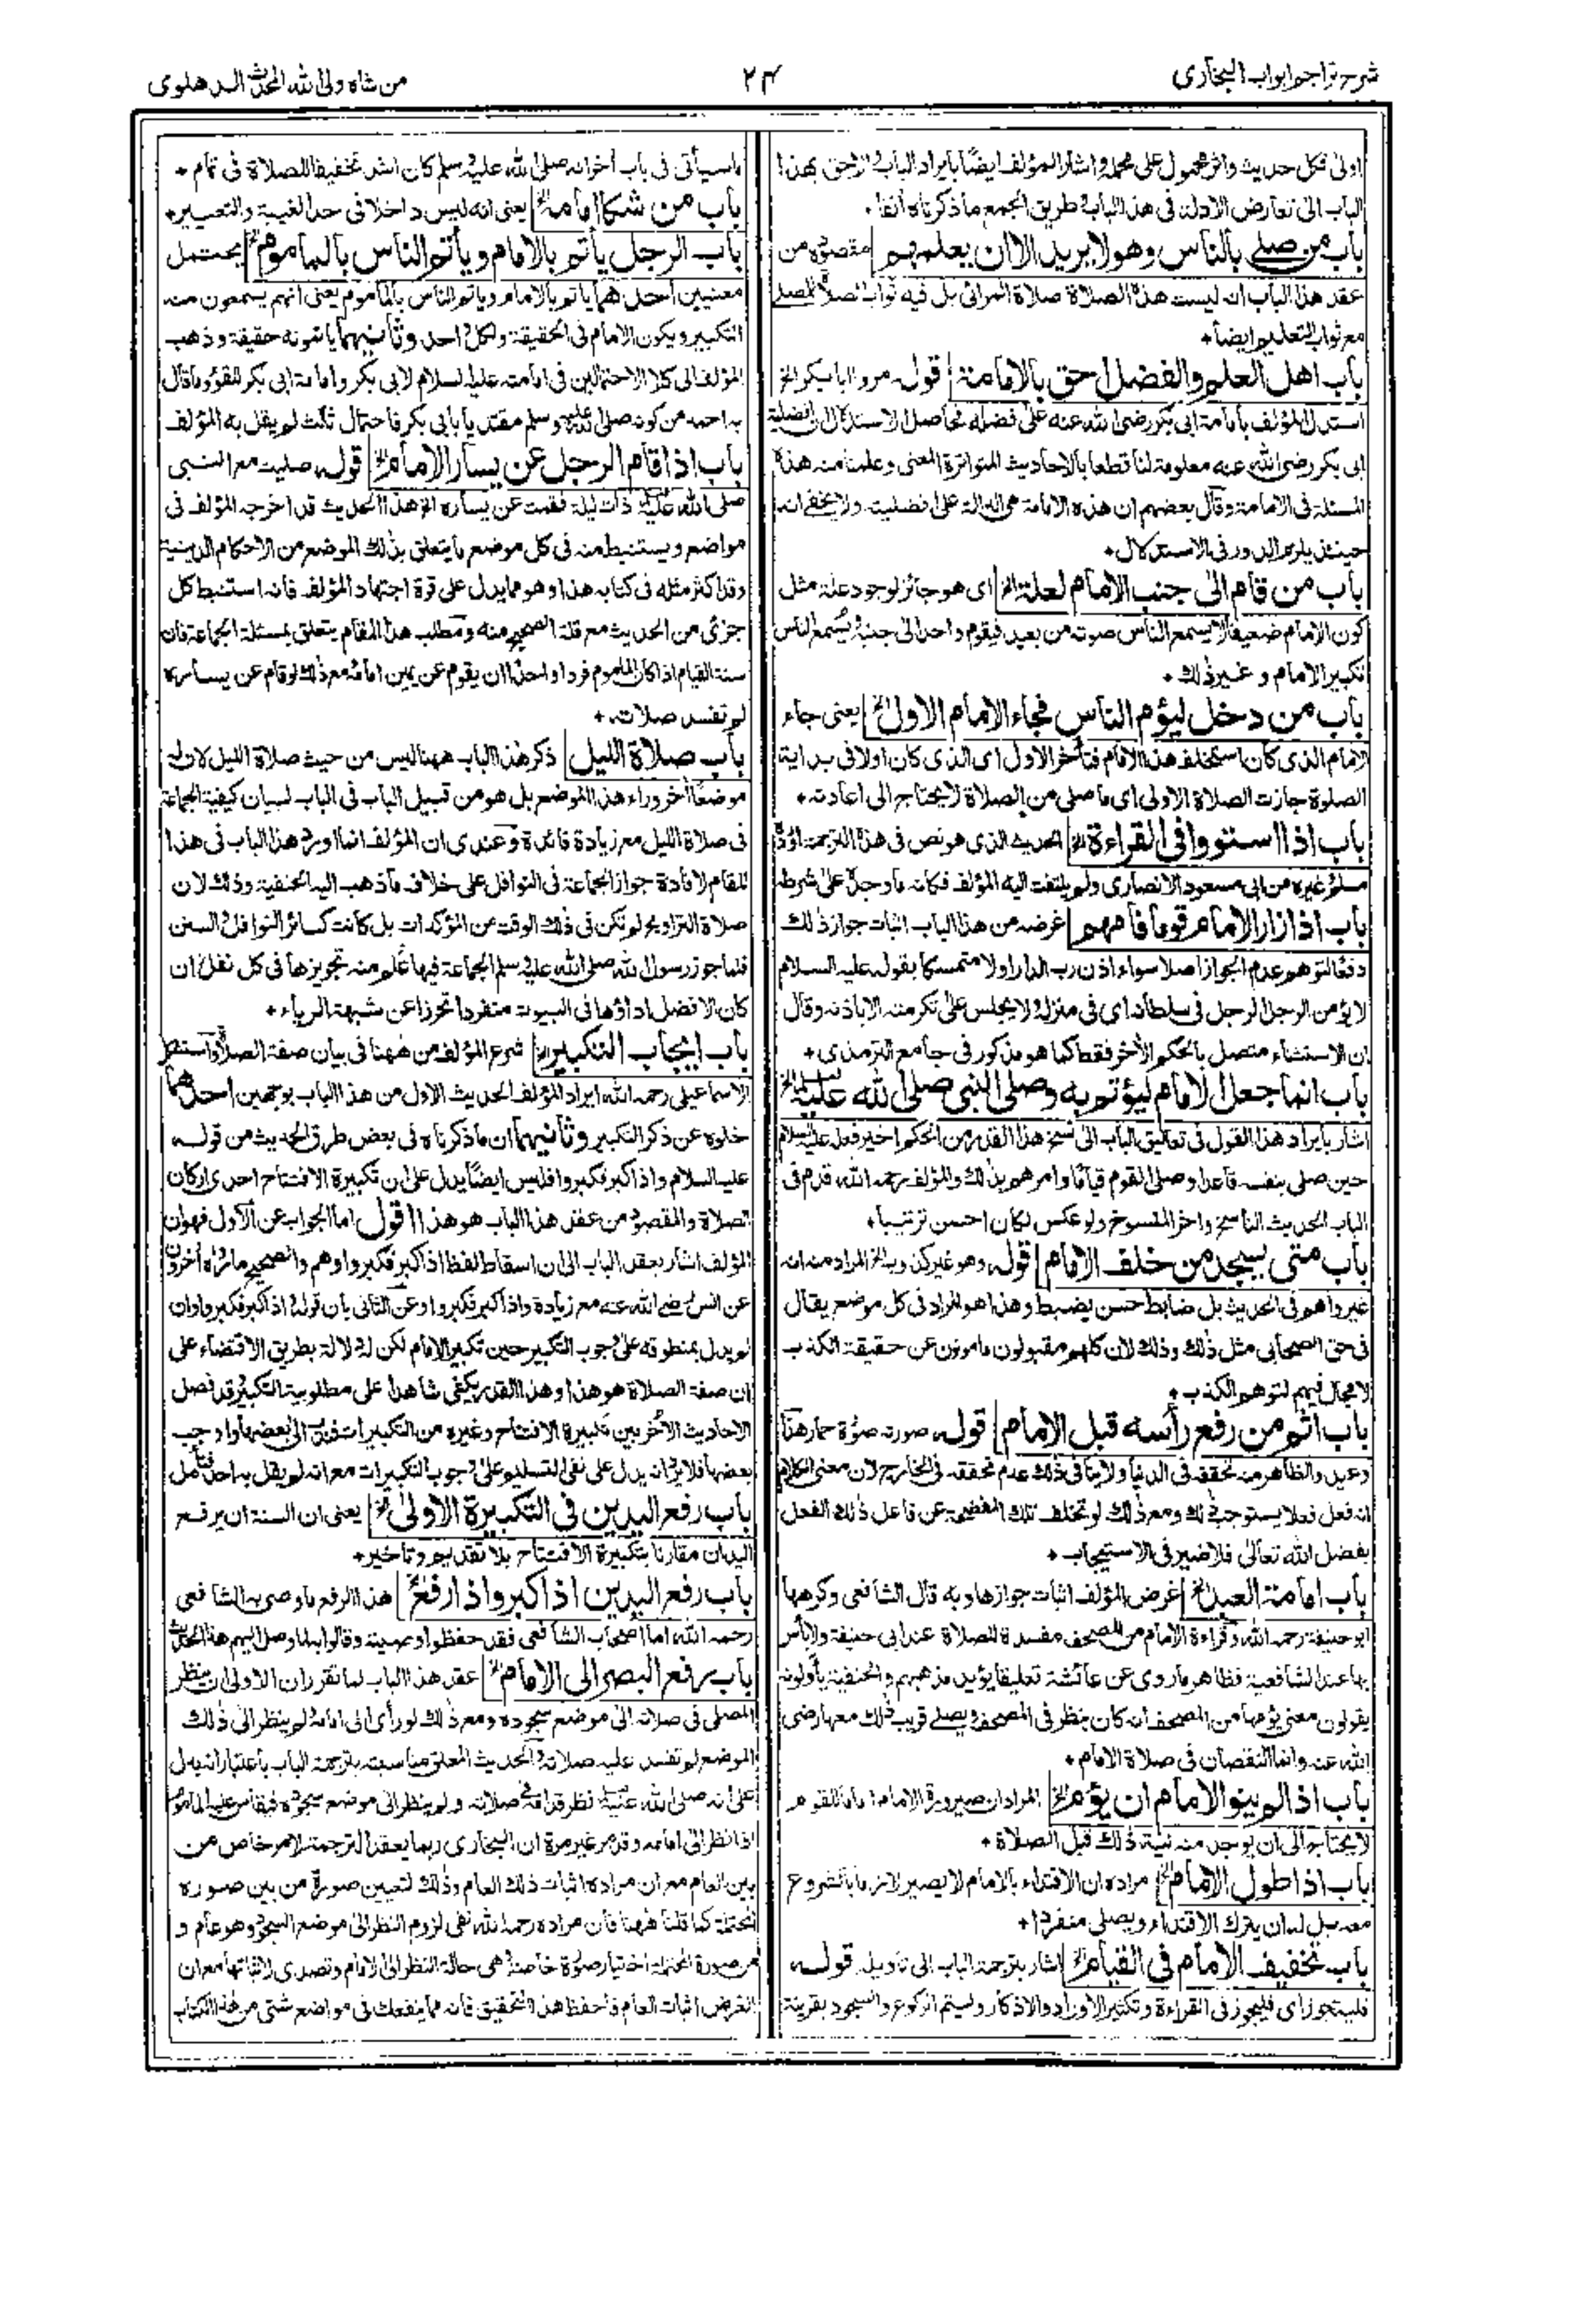 شرح تراجم ابواب البخاري
٢٤
من شاه ولي الله المحدث الدهلوى
اولى فكل حديث واثر محمول على محمله واشار المؤلف ايضًا بايراد الباب اللاحق بهذا
الباب الى تعارض الادلة فى هذا الباب وطريق الجمع ما ذكرناه آنفا
باب من صلى بالناس وهو لا يريد الا ان يعلمهم مقصوده من
عقد هذا الباب ان ليست هذه الصلاة صلاة المرائى بل فيه ثواب الصلاة للمصلى
مع ثواب التعليم ايضا
باب اهل العلم والفضل احق بالامامة قوله مروا ابا بكر الخ
استدل المؤلف بامامة ابى بكر رضى الله عنه على فضله فحاصل الاستدلال ان افضلية
ابى بكر رضى الله عنه معلومة لنا قطعا بالاحاديث المتواترة المعنى وعلمنا منه هذه
المسئلة فى الامامة وقال بعضهم ان هذه الامامة هى الدالة على افضليته ولا يخفى انه
حينئذ يلزم الدور فى الاستدلال
باب من قام الى جنب الامام لعلة الخ اى هو جائز لوجود علة مثل
كون الامام ضعيفا لا يسمع الناس صوته من بعيد فيقوم واحد الى جنبه يسمع الناس
تكبير الامام وغير ذلك
باب من دخل ليؤم الناس فجاء الامام الاول الخ يعنى جاء
الامام الذى كان استخلف هذا الامام فتأخر الاول اى الذى كان اولا فى بداية
الصلوة جازت الصلاة الاولى اى ما صلى من الصلاة لا يحتاج الى اعادته
باب اذا استووا فى القراءة الخ الحديث الذى هو نص فى هذه الترجمة اورده
مسلم وغيره من ابى مسعود الانصارى ولم يلتفت اليه المؤلف فكانه ما وجد على شرطه
باب اذا زار الامام قوما فامهم غرضه من هذا الباب اثبات جواز ذلك
دفعًا لتوهم عدم الجواز اصلا سواء اذن رب الدار او لا متمسكا بقوله عليه السلام
لا يؤمن الرجل الرجل فى سلطانه اى فى منزله ولا يجلس على تكرمته الا باذنه وقال
ان الاستثناء متصل بالحكم الآخر فقط كما هو مذكور فى جامع الترمذى
باب انما جعل الامام ليؤتم به وصلى النبى صلى الله عليه وسلم الخ
اشار بايراد هذا القول فى تعاليق الباب الى نسخ هذا القدر من الحكم اخير فعله عليه السلام
حين صلى بنفسه قاعدا وصلى القوم قياما وامرهم بذلك والمؤلف رحمه الله قدم فى
الباب الحديث الناسخ واخر المنسوخ ولو عكس لكان احسن ترتيبا
باب متى يسجد من خلف الامام قوله وهو غير كذوب الخ المراد منه انه
غير واهم فى الحديث بل ضابط حسن يضبط وهذا هو المراد فى كل موضع يقال
فى حق الصحابى مثل ذلك وذلك لان كلهم مقبولون مامونون عن حقيقة الكذب
لا مجال فيهم لتوهم الكذب
باب اثم من رفع رأسه قبل الامام قوله صورته صورة حمار هذا
وعيد والظاهر منه تحققه فى الدنيا ولا ينافى ذلك عدم تحققه فى الخارج لان معنى الكلام
انه فعل فعلا يستوجب ذلك ومع ذلك لو تخلف تلك الفضيحة عن فاعل ذلك الفعل
بفضل الله تعالى فلا ضير فى الاستيجاب
باب امامة العبد الخ غرض المؤلف اثبات جوازها وبه قال الشافعى وكرهها
ابو حنيفة رحمه الله وقراءة الامام من المصحف مفسدة للصلاة عند ابى حنيفة ولا بأس
بها عند الشافعية فظاهر ما روى عن عائشة تعليقا يؤيد مذهبهم والحنفية يأولونه
يقولون معنى يؤمها من المصحف انه كان ينظر فى المصحف ويصلى قريب ذلك معها رضى
الله عنه وانما النقصان فى صلاة الامام
باب اذا لم ينو الامام ان يؤم الخ المراد ان صيرورة الامام اماما للقوم
لا يحتاج الى ان يوجد منه نية ذلك قبل الصلاة
باب اذا طول الامام الخ مراده ان الاقتداء بالامام لا يصير لازما بالشروع
معه بل له ان يترك الاقتداء ويصلى منفردا
باب تخفيف الامام فى القيام الخ اشار بترجمة الباب الى تاويل قوله
فليتجوز اى فليجوز فى القراءة وتكثير الاوراد والاذكار وليتم الركوع والسجود بقرينة
ما سيأتى فى باب آخر انه صلى الله عليه وسلم كان اشد تخفيفا للصلاة فى تمام
باب من شكا امامه الخ يعنى انه ليس داخلا فى حد الغيبة والتعيير
باب الرجل يأتم بالامام ويأتم الناس بالمأموم الخ يحتمل
معنيين احدهما يأتم بالامام ويأتم الناس بالمأموم يعنى انهم يسمعون منه
التكبير ويكون الامام فى الحقيقة ولكل واحد وثانيهما يأتمونه حقيقة وذهب
المؤلف الى كلا الاحتمالين فى امامته عليه السلام لابى بكر وامامة ابى بكر للقوم وما قال
به احمد من كونه صلى الله عليه وسلم مقتديا بابى بكر فاحتمال ثالث لم يقل به المؤلف
باب اذا قام الرجل عن يسار الامام الخ قوله صليت مع النبى
صلى الله عليه وسلم ذات ليلة فقمت عن يساره الخ هذا الحديث قد اخرجه المؤلف فى
مواضع ويستنبط منه فى كل موضع ما يتعلق بذلك الموضع من الاحكام الدينية
وقد اكثر مثله فى كتابه هذا وهو مما يدل على قوة اجتهاد المؤلف فانه استنبط كل
جزئى من الحديث مع قلة الصحيح منه ومطلب هذا المقام يتعلق بمسئلة الجماعة فان
سنة القيام اذا كان المأموم فردا واحدا ان يقوم عن يمين امامه مع ذلك لو قام عن يساره
لم تفسد صلاته
باب صلاة الليل ذكر هذا الباب ههنا ليس من حيث صلاة الليل لان له
موضعا آخر وراء هذا الموضع بل هو من قبيل الباب فى الباب لبيان كيفية الجماعة
فى صلاة الليل مع زيادة فائدة وعندى ان المؤلف انما اورد هذا الباب فى هذا
المقام لافادة جواز الجماعة فى النوافل على خلاف ما ذهب اليه الحنفية وذلك لان
صلاة التراويح لم تكن فى ذلك الوقت من المؤكدات بل كانت كسائر النوافل والسنن
فلما جوز رسول الله صلى الله عليه وسلم الجماعة فيها علم منه تجويزها فى كل نفل وان
كان الافضل اداؤها فى البيوت منفردا تحرزا عن شبهة الرياء
باب ايجاب التكبير الخ شرع المؤلف من ههنا فى بيان صفة الصلاة واستشكل
الاسماعيلى رحمه الله ايراد المؤلف الحديث الاول من هذا الباب بوجهين احدهما
خلوه عن ذكر التكبير وثانيهما ان ما ذكرناه فى بعض طرق الحديث من قوله
عليه السلام واذا كبر فكبروا فليس ايضًا يدل على ان تكبيرة الافتتاح احدى اركان
الصلاة والمقصود من عقد هذا الباب هو هذا اقول اما الجواب عن الاول فهو ان
المؤلف اشار بعقد الباب الى ان اسقاط لفظ اذا كبر فكبروا وهم والصحيح ما رواه آخرون
عن انس رضى الله عنه مع زيادة واذا كبر فكبروا وعن الثانى بان قوله اذا كبر فكبروا وان
لم يدل بمنطوقه على وجوب التكبير حين تكبير الامام لكن له دلالة بطريق الاقتضاء على
ان صفة الصلاة هو هذا وهذا القدر يكفى شاهدا على مطلوبية التكبير قد فصل
الاحاديث الأخر بين تكبيرة الافتتاح وغيره من التكبيرات
بعضها فلا يرد انه يدل على نفى التسليم وعلى وجوب التكبيرات مع انه لم يقل به احد فتأمل
باب رفع اليدين فى التكبيرة الاولى الخ يعنى ان السنة ان يرفع
اليدان مقارنا بتكبيرة الافتتاح بلا تقديم وتاخير
باب رفع اليدين اذا كبر واذا رفع الخ هذا الرفع ما وصى به الشافعى
رحمه الله اما اصحاب الشافعى فقد حفظوا وصيته وقالوا به لما وصل اليهم هذا الحديث
باب رفع البصر الى الامام الخ عقد هذا الباب لما تقرر ان الاولى ان ينظر
المصلى فى صلاته الى موضع سجوده ومع ذلك لو رأى الى امامه ولم ينظر الى ذلك
الموضع لم تفسد عليه صلاته والحديث المعلق مناسبته بترجمة الباب باعتبار انه يدل
على انه صلى الله عليه وسلم نظر قدامه فى صلاته ولم ينظر الى موضع سجوده فيقاس عليه المأموم
اذا نظر الى امامه وقد مر غير مرة ان البخارى ربما يعقد الترجمة لامر خاص من
بين العام مع ان مراده اثبات ذلك العام وذلك لتعيين صورة من بين صوره
المحتملة كما قلنا ههنا فان مراده رحمه الله نفى لزوم النظر الى موضع السجود وهو عام و
من صوره المحتملة اختيار صورة خاصة هى حالة النظر الى الامام وتصدى لاثباتها مع ان
الغرض اثبات العام فاحفظ هذا التحقيق فانه مما ينفعك فى مواضع شتى من هذا الكتاب